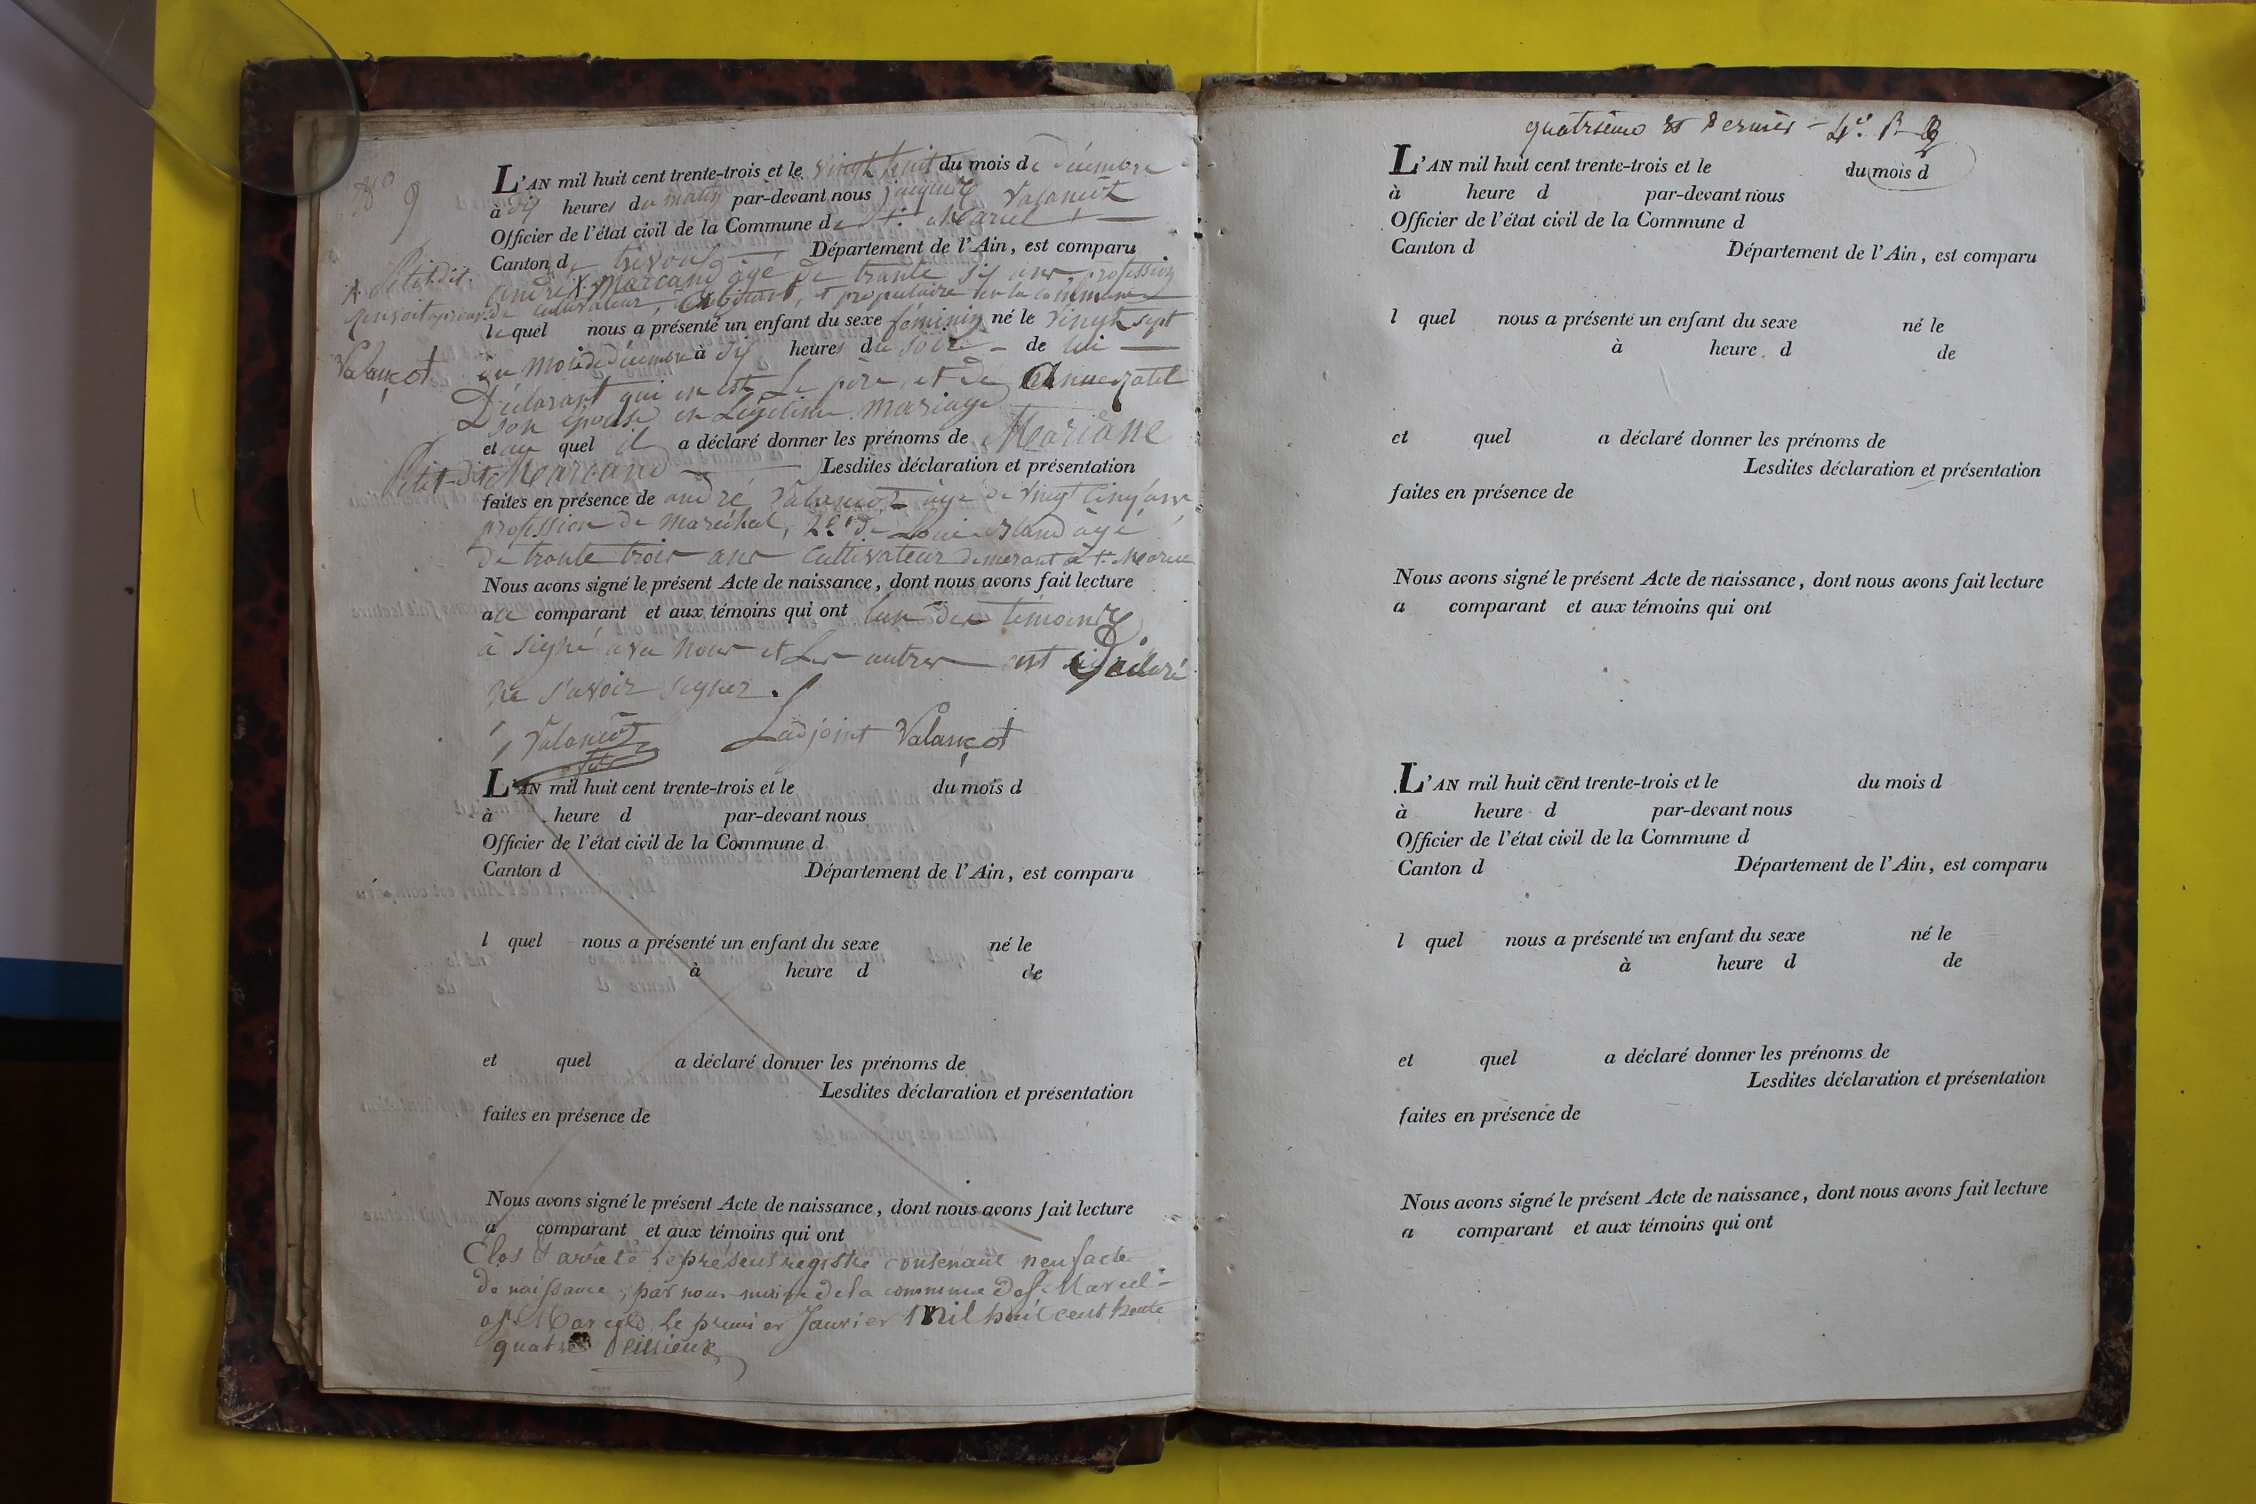 N° 9
L'AN mil huit cent trente-trois et le vingt huit du mois de décembre
à dix heures du matin par-devant nous jacques Valançot
Officier de l'état civil de la Commune de St. Marcel
Canton de trévoux Département de l'Ain, est comparu
andré X Marcand âgé de trante six ans profession
X Petit dit
de cultivateur, et propriétaire en la commune
Valançot
lequel nous a présenté un enfant du sexe féminin né le vingt sept
du mois de décembre à six heures du soire de lui
Déclarant qui en est Le père, et de anne
son épouse en Légitime mariage
et au quel il a déclaré donner les prénoms de Mariane
Petit-dit Marcand Lesdites déclaration et présentation
faites en présence de andré Valançot âgé de vingt cinq ans
profession de maréchal, 2e. de Loui âgé
de trante trois ans cultivateur demerant à St. Marcel
Nous avons signé le présent Acte de naissance, dont nous avons fait lecture
au comparant et aux témoins qui ont lun des témoins
à signé avec nous et Les autres ont déclaré
ne savoir signer.
Valançot fils Ladjoint Valançot
L'AN mil huit cent trente-trois et le du mois d
à heure d par-devant nous
Officier de l'état civil de la Commune d
Canton d Département de l'Ain, est comparu
l quel nous a présenté un enfant du sexe né le
à heure d de
et quel a déclaré donner les prénoms de
Lesdites déclaration et présentation
faites en présence de
Nous avons signé le présent Acte de naissance, dont nous avons fait lecture
a comparant et aux témoins qui ont
Clos & arrêté le présent registre contenant neuf acte
de naissance, par nous maire de la commune de St Marcel
a St Marcel le premier Janvier mil huit cent trente
quatre
quatrième et dernier
L'AN mil huit cent trente-trois et le du mois d
à heure d par-devant nous
Officier de l'état civil de la Commune d
Canton d Département de l'Ain, est comparu
l quel nous a présenté un enfant du sexe né le
à heure d de
et quel a déclaré donner les prénoms de
Lesdites déclaration et présentation
faites en présence de
Nous avons signé le présent Acte de naissance, dont nous avons fait lecture
a comparant et aux témoins qui ont
L'AN mil huit cent trente-trois et le du mois d
à heure d par-devant nous
Officier de l'état civil de la Commune d
Canton d Département de l'Ain, est comparu
l quel nous a présenté un enfant du sexe né le
à heure d de
et quel a déclaré donner les prénoms de
Lesdites déclaration et présentation
faites en présence de
Nous avons signé le présent Acte de naissance, dont nous avons fait lecture
a comparant et aux témoins qui ont